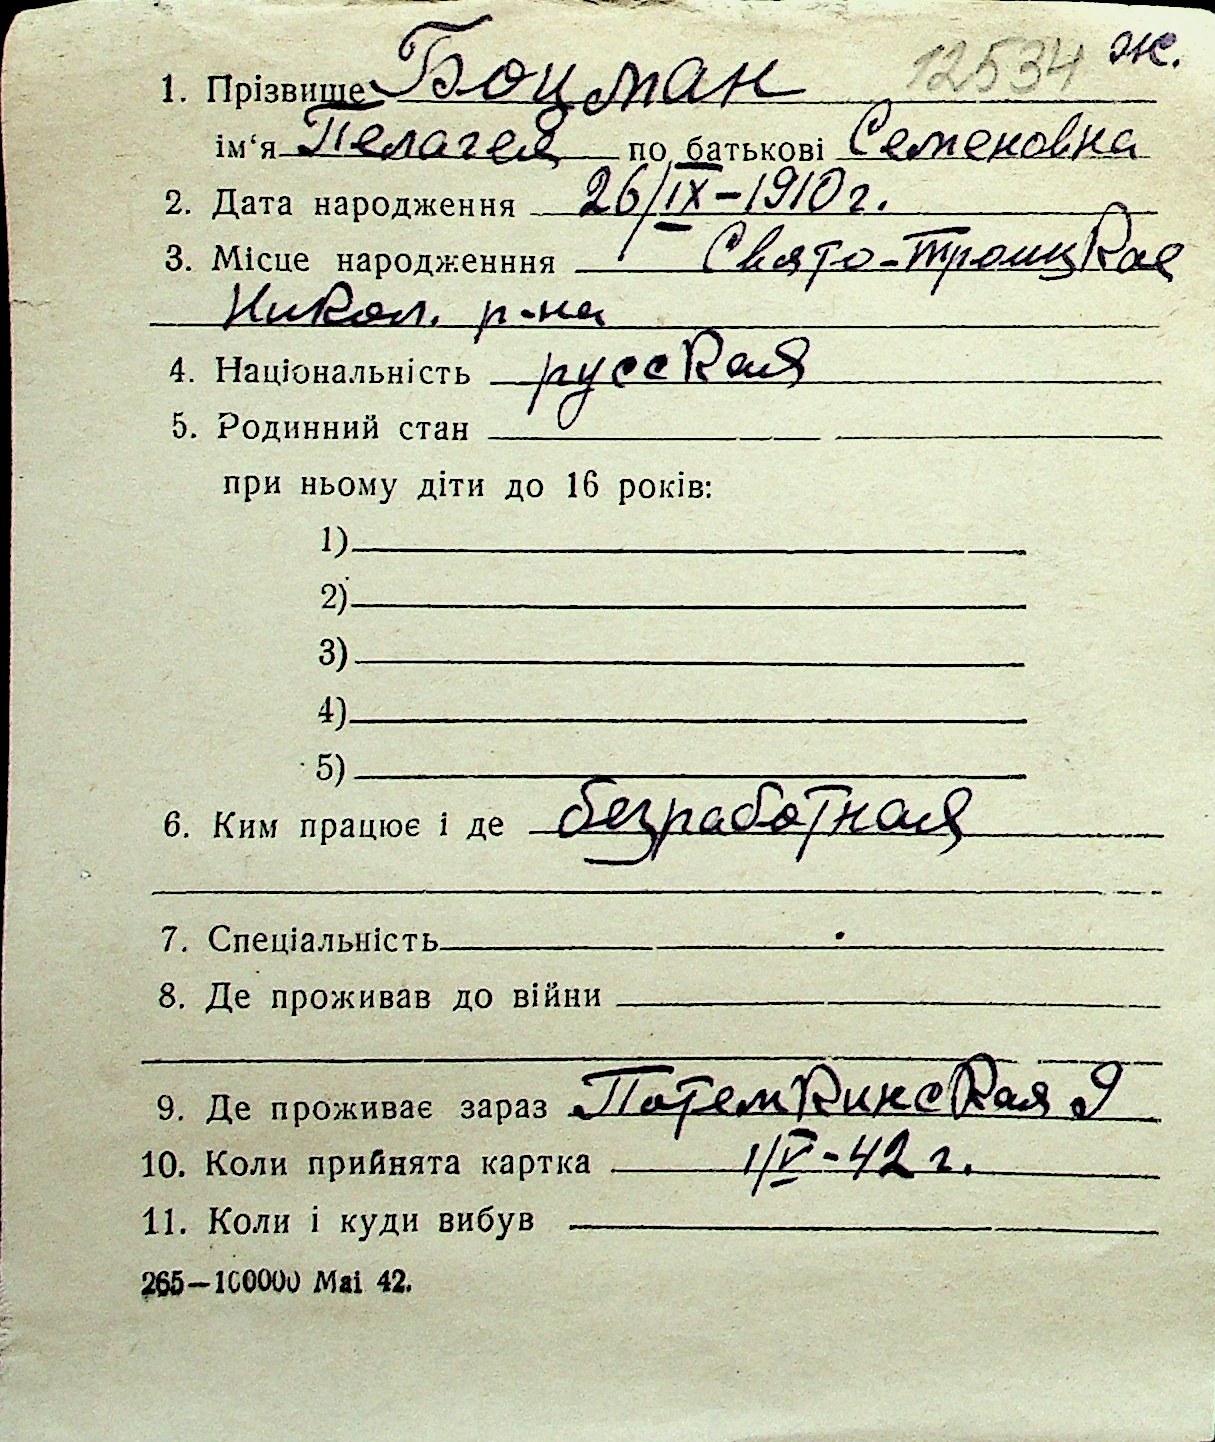 12534 ж.
1. Прізвище Боцман
ім‘я Пелагея по батькові Семеновна
2. Дата народження 26/IX-1910 г.
3. Місце народженння Свято-Троицкое
Никол. р-на
4. Національність русская
5. Родинний стан
при ньому діти до 16 років:
1)
2)
3)
4)
5)
6. Ким працює і де безработная
7. Спеціальність
8. Де проживав до війни
9. Де проживає зараз Потемкинская 9
10. Коли прийнята картка 1/V-42 г.
11. Коли і куди вибув
265—100000 Mai 42.